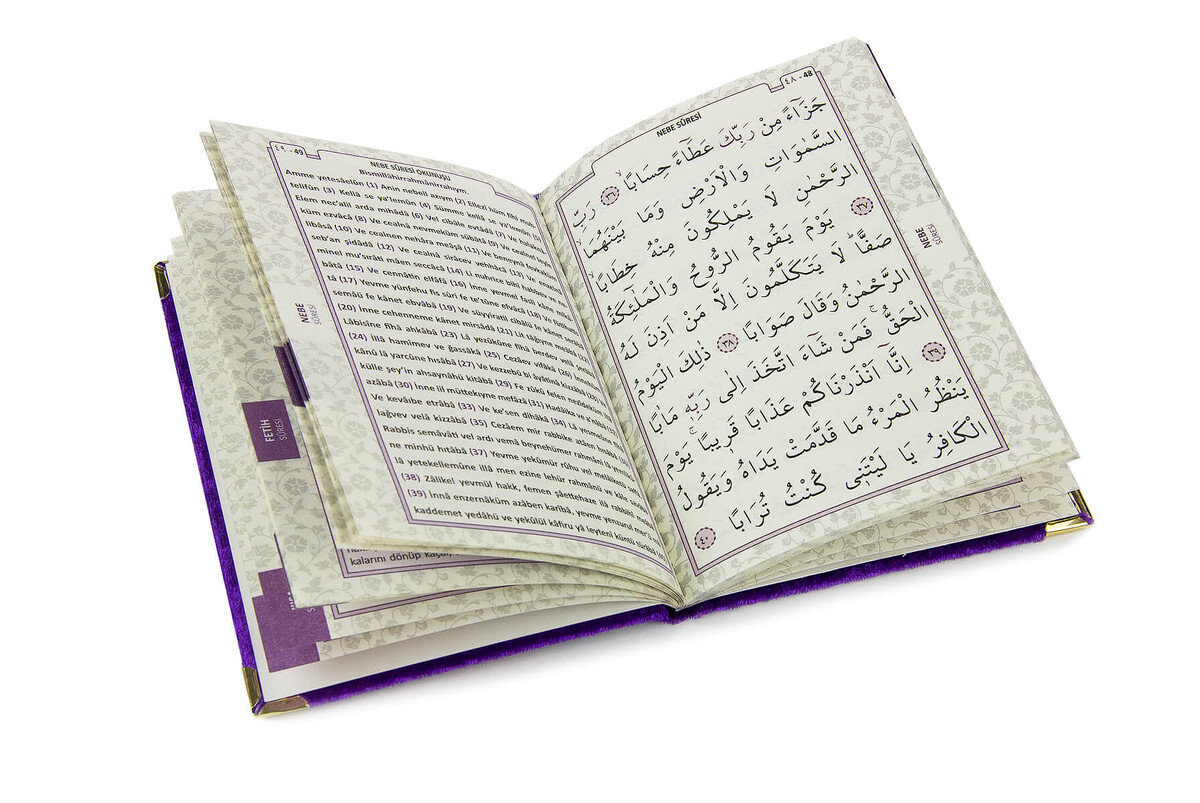 ٤٨ - 48
NEBE SÛRESİ
جَزَٓاءً مِنْ رَبِّكَ عَطَٓاءً حِسَابًاۙ ٣٦ رَبِّ
السَّمٰوَاتِ وَالْاَرْضِ وَمَا بَيْنَهُمَا
الرَّحْمٰنِ لَا يَمْلِكُونَ مِنْهُ خِطَابًاۚ ٣٧
يَوْمَ يَقُومُ الرُّوحُ وَالْمَلٰٓئِكَةُ
صَفًّاۜ لَا يَتَكَلَّمُونَ اِلَّا مَنْ اَذِنَ لَهُ
الرَّحْمٰنُ وَقَالَ صَوَابًا ٣٨ ذٰلِكَ الْيَوْمُ
الْحَقُّۚ فَمَنْ شَٓاءَ اتَّخَذَ اِلٰى رَبِّه۪ مَاٰبًا ٣٩
اِنَّٓا اَنْذَرْنَاكُمْ عَذَابًا قَر۪يبًاۚ يَوْمَ
يَنْظُرُ الْمَرْءُ مَا قَدَّمَتْ يَدَاهُ وَيَقُولُ
الْكَافِرُ يَا لَيْتَن۪ي كُنْتُ تُرَابًا ٤٠
NEBE
SÛRESİ
٤٩ - 49
NEBE SÛRESİ OKUNUŞU
Bismillâhirrahmânirrahıym.
Amme yetesâelûn (1) Anin nebeil azıym (2) Ellezî hüm fîhi muh
telifûn (3) Kellâ se ya'lemûn (4) Sümme kellâ se ya'lemûn
Elem nec'alil arda mihâdâ (6) Vel cibâle evtâdâ (7) Ve halaknâ
küm ezvâcâ (8) Ve cealnâ nevmeküm sübâtâ (9) Ve cealnel leyle
libâsâ (10) Ve cealnen nehâra meâşâ (11) Ve beneynâ fevkaküm
seb'an şidâdâ (12) Ve cealnâ sirâcev vehhâcâ (13) Ve enzelnâ
minel mu'sırâti mâen seccâcâ (14) Li nuhrice bihî habbev ve ne
bâtâ (15) Ve cennâtin elfâfâ (16) İnne yevmel fasli kâne mîkâ
tâ (17) Yevme yünfehu fis sûri fe te'tûne efvâcâ (18) Ve fütihatis
semâü fe kânet ebvâbâ (19) Ve süyyiratil cibâlü fe kânet serâbâ
(20) İnne cehenneme kânet mirsâdâ (21) Lit tâğıyne meâbâ
Lâbisîne fîhâ ahkâbâ (23) Lâ yezûkûne fîhâ berdev velâ şerâbâ
(24) İllâ hamîmev ve ğassâkâ (25) Cezâev vifâkâ (26) İnnehüm
kânû lâ yarcûne hısâbâ (27) Ve kezzebû bi âyâtinâ kizzâbâ (28)
külle şey'in ahsaynâhü kitâbâ (29) Fe zûkû felen nezîdeküm
azâbâ (30) İnne lil müttekıyne mefâzâ (31) Hadâika ve a'nâbâ
Ve kevâıbe etrâbâ (33) Ve ke'sen dihâkâ (34) Lâ yesmeûne
lağvev velâ kizzâbâ (35) Cezâem mir rabbike atâen hısâbâ
Rabbis semâvâti vel ardı vemâ beynehümer rahmâni lâ
ne minhü hıtâbâ (37) Yevme yekûmür rûhu vel melâiketü
lâ yetekellemûne illâ men ezine lehür rahmânü ve kâle
(38) Zâlikel yevmül hakk, femen şâettehaze ilâ rabbihî
(39) İnnâ enzernâküm azâben karîbâ, yevme yenzurul mer'ü
kaddemet yedâhü ve yekûlül kâfiru yâ leytenî küntü türâbâ
NEBE
SÛRESİ
FETİH
SÛRESİ
kalarını dönüp kaçar,